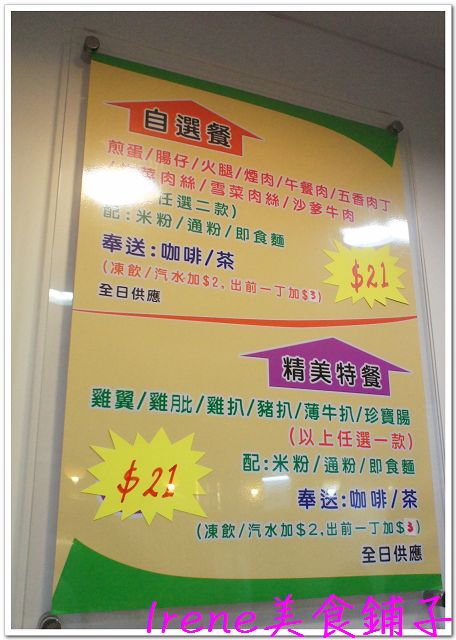 自選餐
煎蛋/腸仔/火腿/煙肉/午餐肉/五香肉丁
菜肉絲/雪菜肉絲/沙爹牛肉
任選二款)
配:米粉/通粉/即食麵
奉送:咖啡/茶
(凍飲/汽水加$2,出前一丁加$3)
全日供應
$21
精美特餐
雞翼/雞肶/雞扒/豬扒/薄牛扒/珍寶腸
(以上任選一款)
配:米粉/通粉/即食麵
$21
奉送:咖啡/茶
(凍飲/汽水加$2,出前一丁加$3)
全日供應
Irene美食鋪子